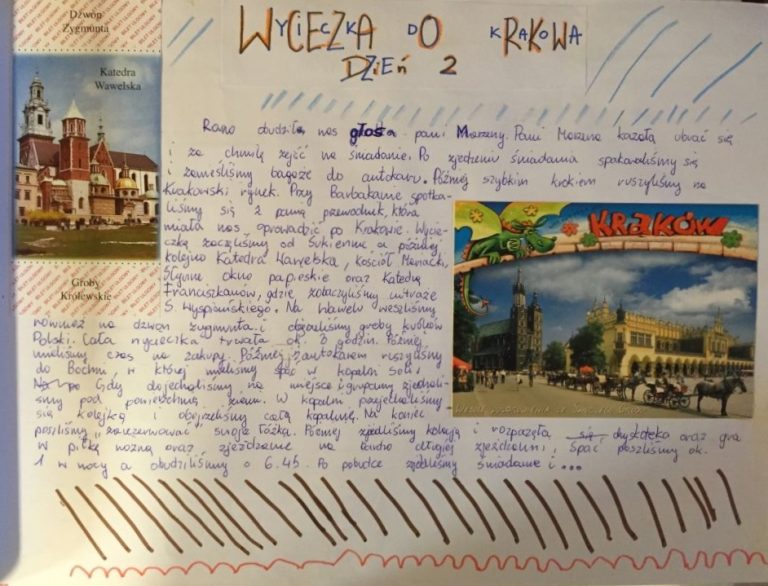 Dzwon
Zygmunta
Katedra
Wawelska
Groby
Królewskie
WYCIECZKA DO KRAKOWA
DZIEŃ 2
Rano obudziła nas głos pani Marzeny. Pani Marzena kazała ubrać się
i za chwilę zejść na śniadanie. Po zjedzeniu śniadania spakowaliśmy się
i zanieśliśmy bagaże do autokaru. Później szybkim krokiem ruszyliśmy na
Krakowski rynek. Przy Barbakanie spotka-
liśmy się z panią przewodnik, która
miała nas oprowadzić po Krakowie. Wycie-
czkę zaczęliśmy od Sukiennic a później
kolejno Katedra Wawelska, kościół Mariacki,
słynne okno papieskie oraz Katedrę
Franciszkanów, gdzie zobaczyliśmy witraże
S. Wyspiańskiego. Na Wawelu weszliśmy
również na dzwon zygmunta i obejrzeliśmy groby królów
Polski. Cała wycieczka trwała ok. godzin. Później
mieliśmy czas na zakupy. Później autokarem ruszyliśmy
do Bochni, w której mieliśmy spać w kopalni soli.
Gdy dojechaliśmy na miejsce i grupami zjechali-
śmy pod powierzchnię ziemi. W kopalni przejechaliśmy
się kolejką i obejrzeliśmy całą kopalnię. Na koniec
poszliśmy "zarezerwować" swoje łóżka. Później zjedliśmy kolację i rozpoczęła się dyskoteka oraz gra
w piłkę nożną oraz zjeżdżanie na bardzo długiej zjeżdżalni. Spać poszliśmy ok.
1 w nocy a obudziliśmy o 6.45. Po pobudce zjedliśmy śniadanie i ...
KRAKÓW